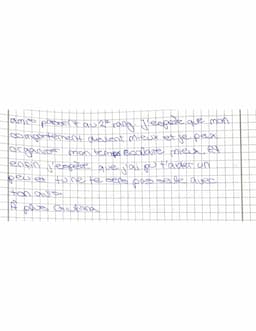 amis passent au 2e rang j'espère que mon
comportement devient mieux et je peux
organiser mon temps scolaire mieux. Et
enfin j'espère que j'ai pu t'aider un
peu et tu ne te sens pas seule avec
ton avis
À plus